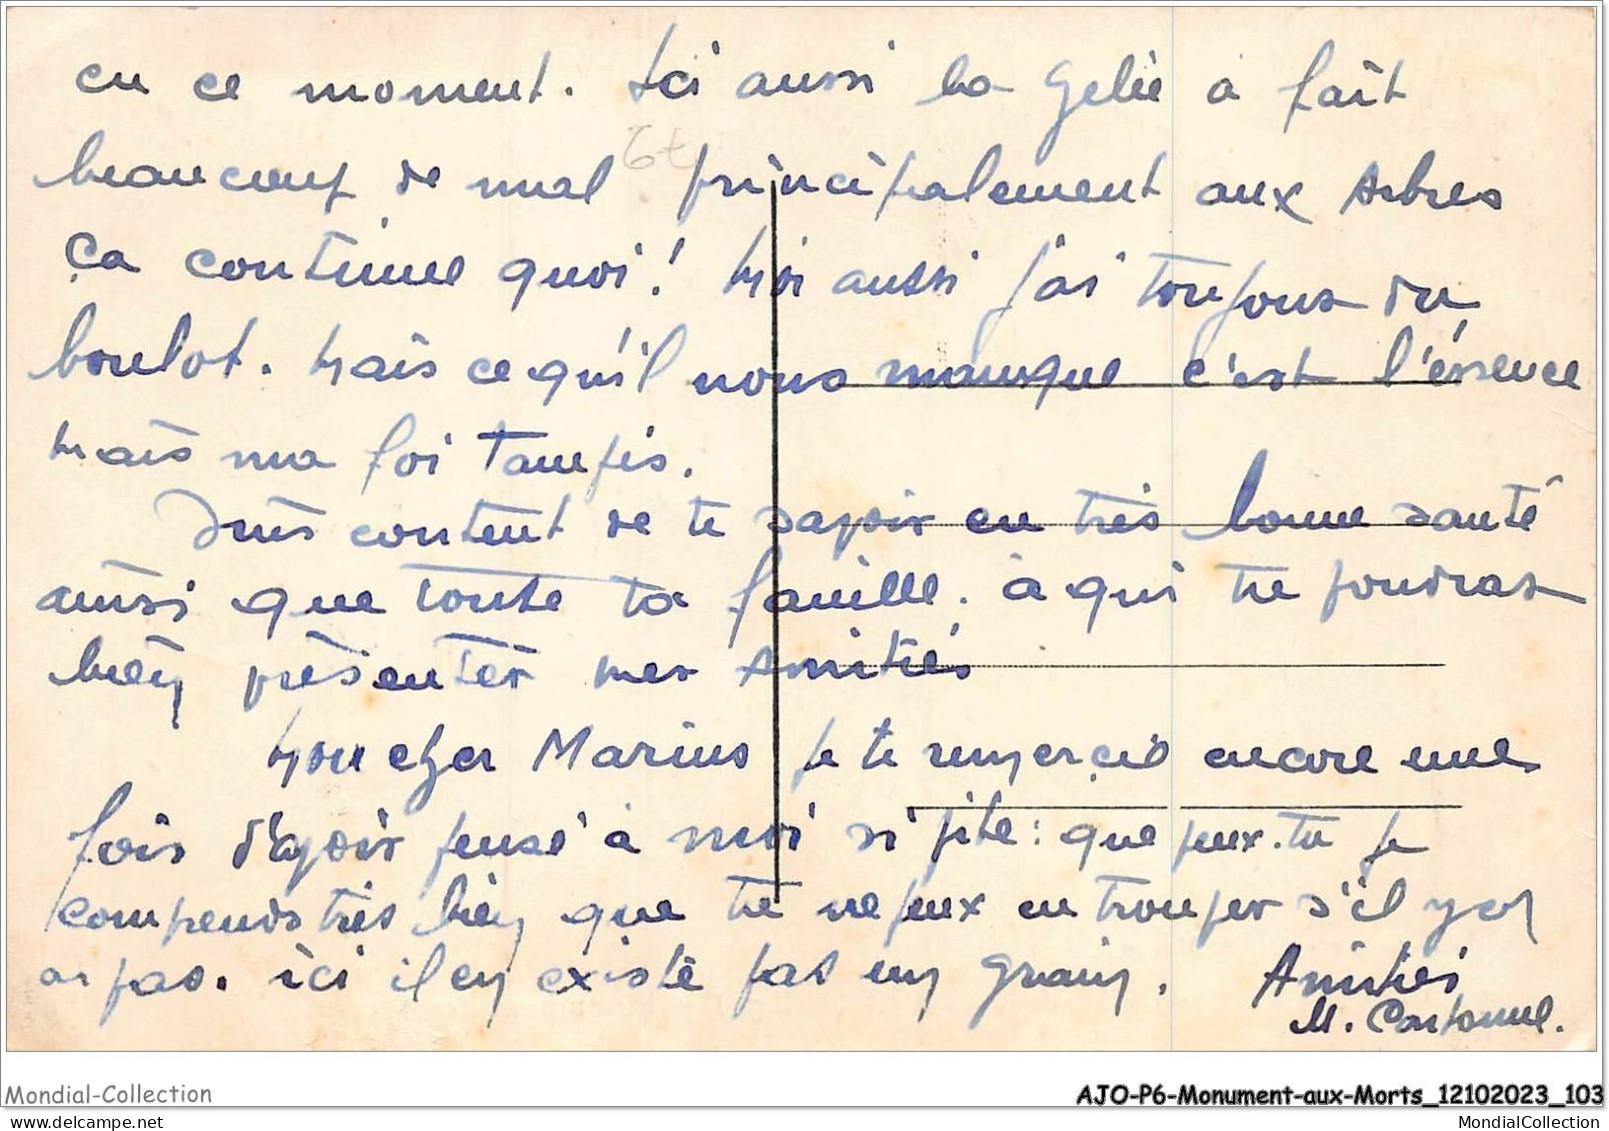 en ce moment. Ici aussi la Gelée a fait
beaucoup de mal principalement aux Arbres
79
ça continue quoi! Moi aussi j'ai toujours du
boulot. Mais ce qu'il nous manque c'est l'éssence
Mais ma foi tanpis.
Suis content de te savoir en très bonne santé
ainsi que toute ta famille. à qui tu voudras
bien présenter mes Amitiés
Mon cher Marius je te remerçie encore une
fois d'avoir pensé à moi si vite: que veux-tu je
comprends très bien que tu ne peux en trouver s'il y en
a pas. ici il en existe pas un grain. Amitiés
M.
Mondial-Collection
AJO-P6-Monument-aux-Morts_12102023_103
my veer
MondialCollection